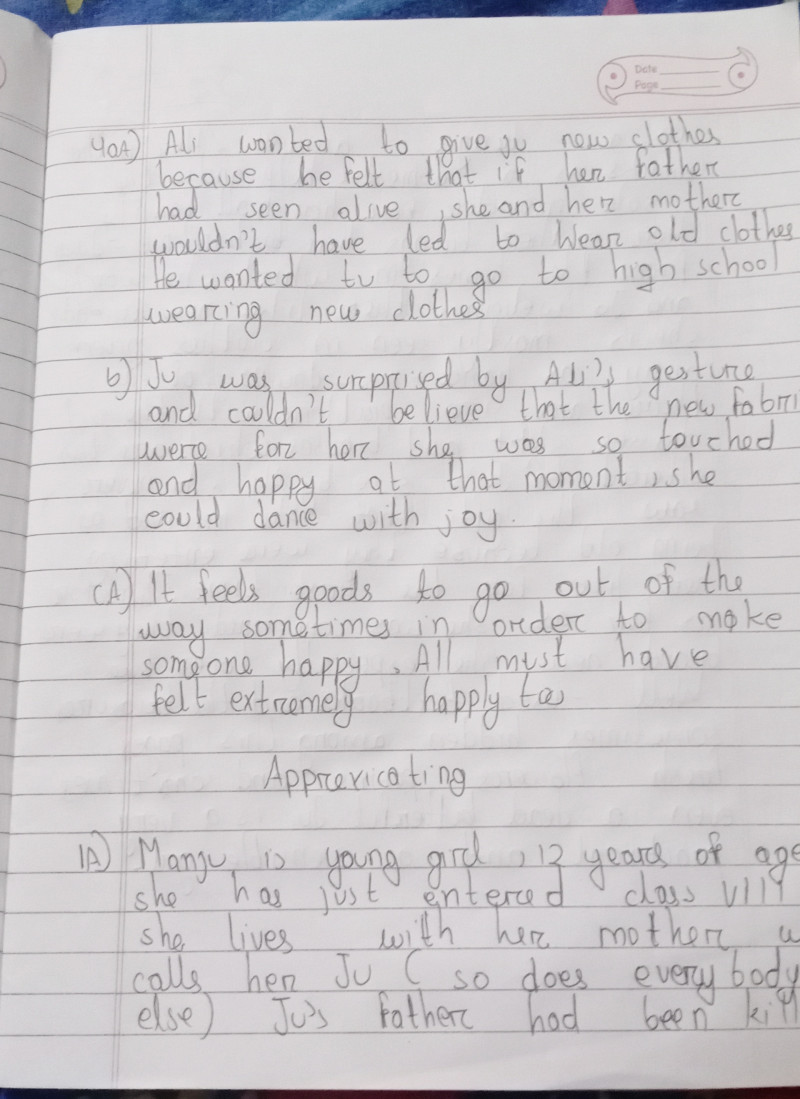 Date
Page
4aA) Ali wanted to give Ju new clothes
because he felt that if her father
had seen alive, she and her mother
wouldn't have led to wear old clothes
He wanted tu to go to high school
wearing new clothes
b) Ju was surprised by Ali's gesture
and couldn't believe that the new fabri
were for her she was so touched
and happy at that moment, she
could dance with joy.
cA) It feels goods to go out of the
way sometimes in order to make
someone happy. All must have
felt extremely happly to
Apprevicating
1A) Manju is young girl, 12 years of age
she has just entered class VIII
she lives with her mother w
calls her Ju (so does everybody
else) Ju's father had been kill